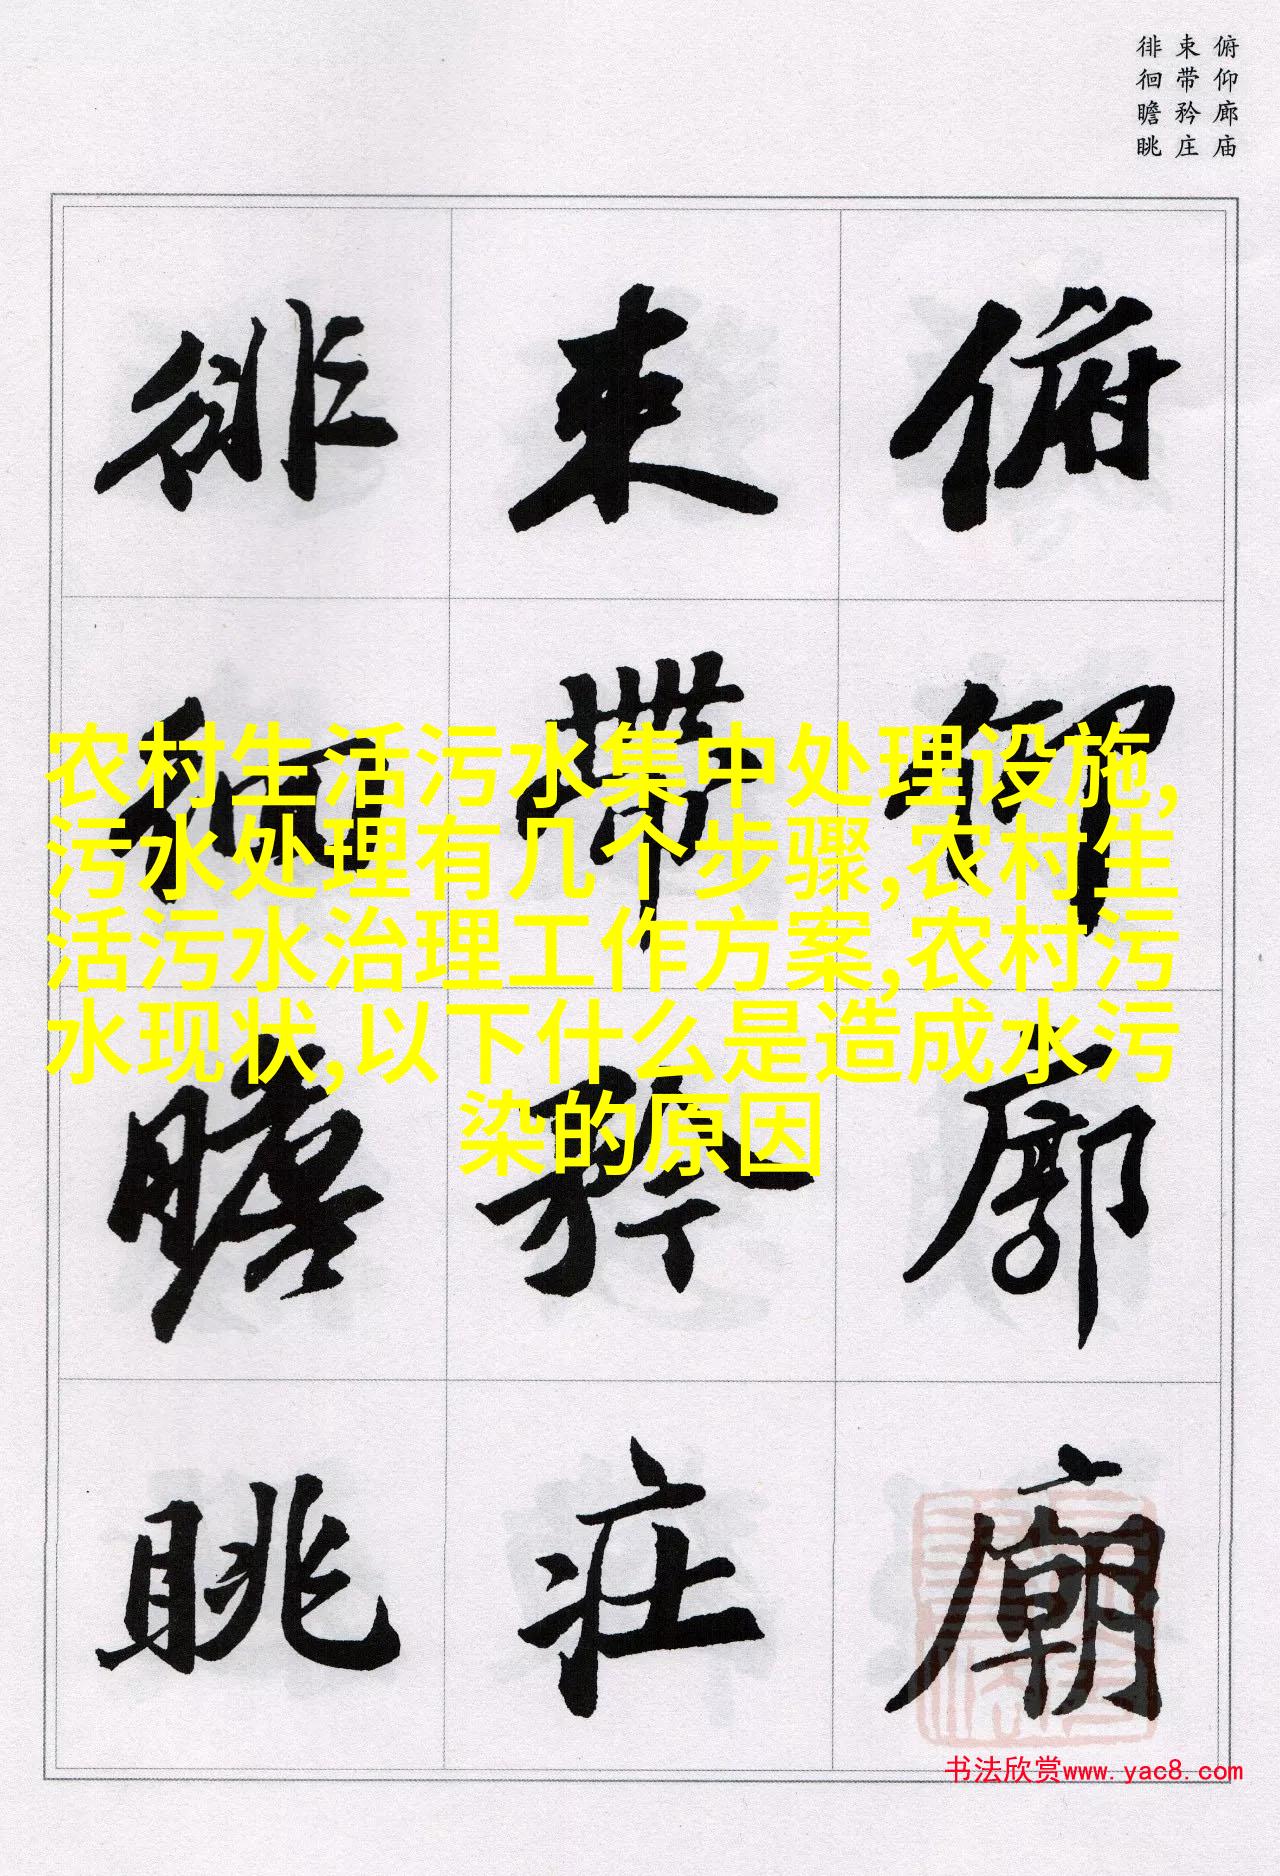 俯仰廊庙
束带矜庄
徘徊瞻眺
俯仰廊廟
束帶矜莊
徘徊瞻眺
农村生活污水集中处理设施,
污水处理有几个步骤,农村生
活污水治理工作方案,农村污
水现状,以下什么是造成水污
染的原因
书法欣赏www.yac8.com